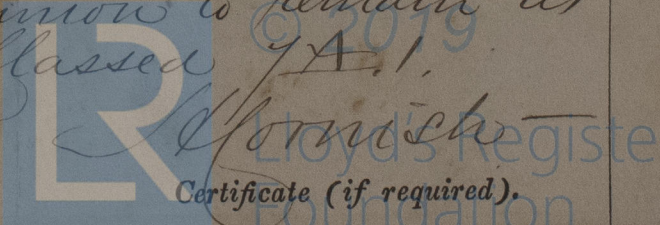 to remain as
Classed A.1.
Cornish —
Certificate (if required).
LR
© 2019
Lloyd's Registe
Foundation